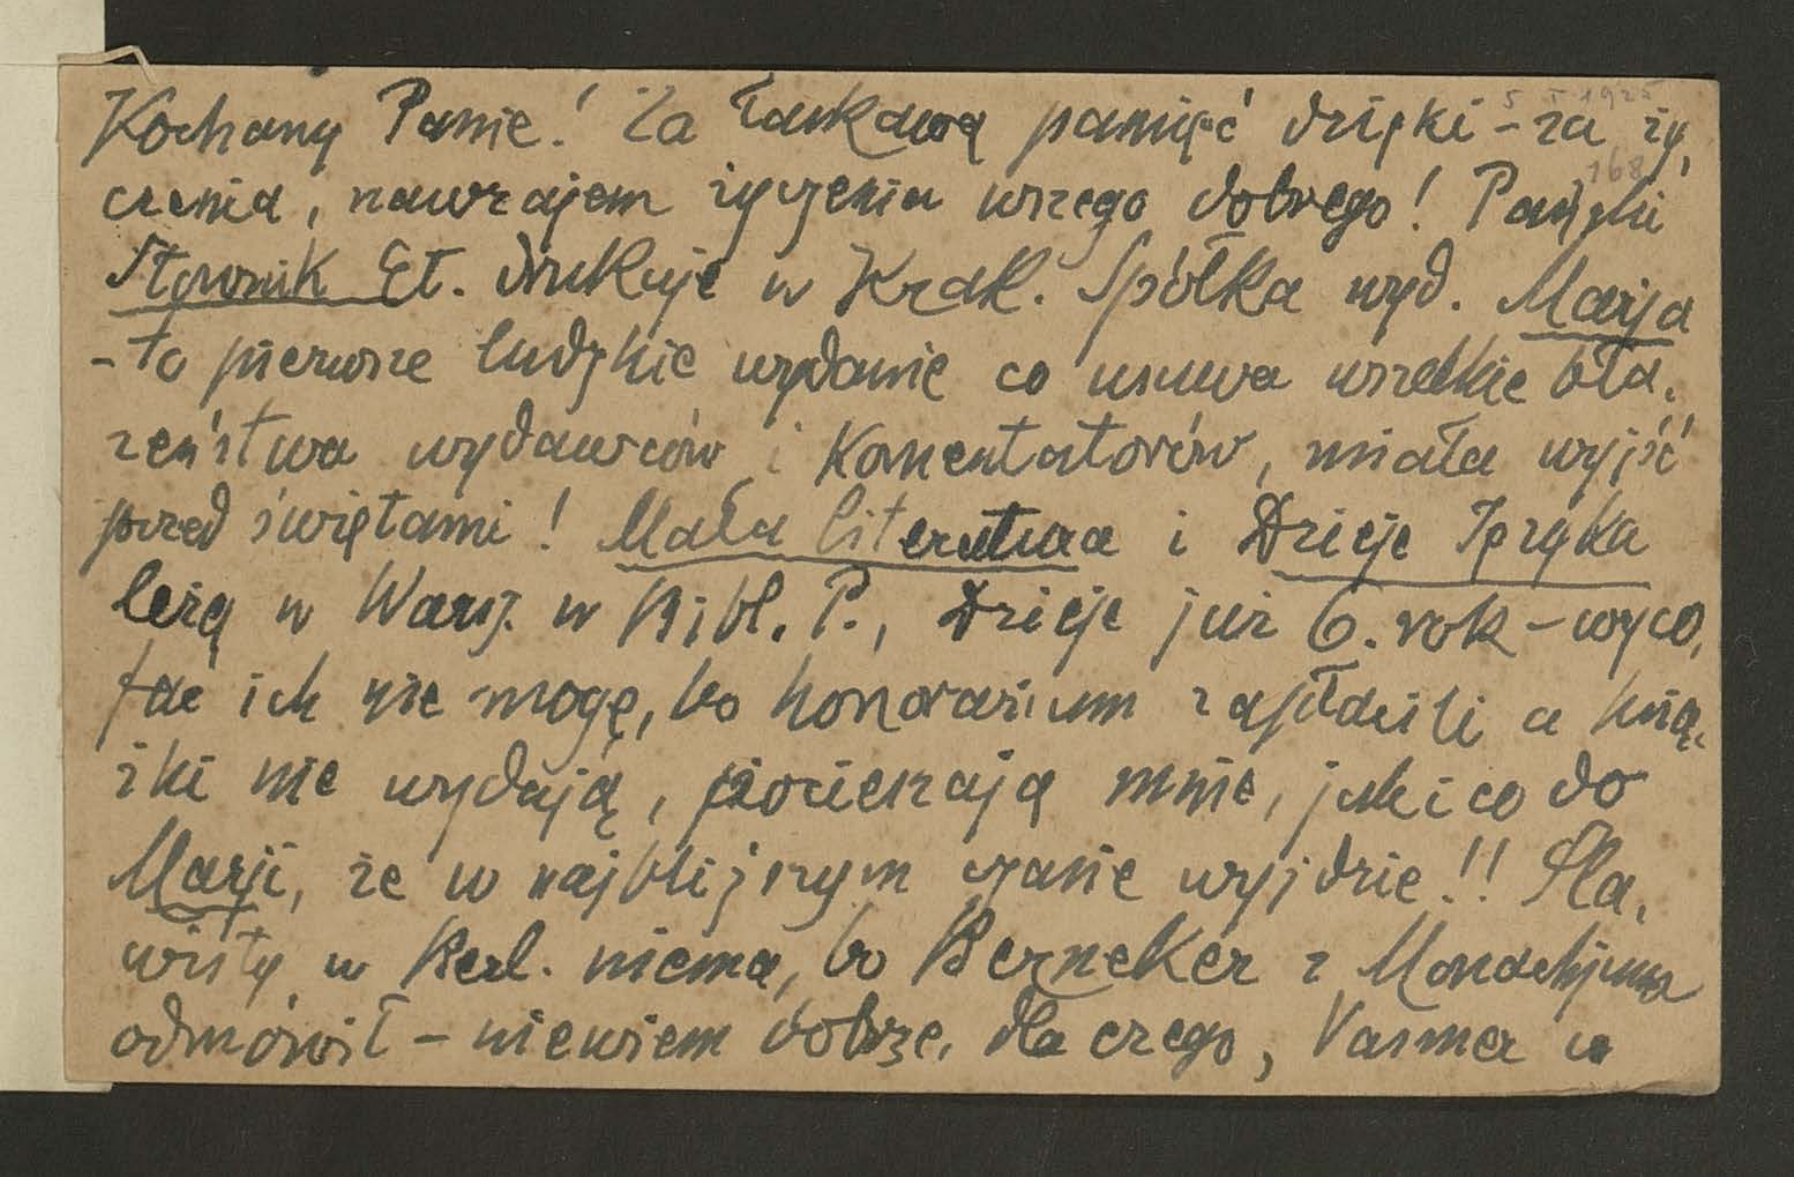 5 I 1925
Kochany Panie! Za łaskawą pamięć dzięki – za ży,
168
czenia, nawzajem życzenia wszego dobrego! Pański
Słownik Et. drukuje w Krak. Spółka wyd. Marja
– to pierwsze ludzkie wydanie co usuwa wszelkie bła,
zeństwa wydawców i komentatorów, miała wyjść
przed świętami! Mała literatura i Dzieje Języka
leżą w Warsz. w Bibl. P., Dzieje już 6. rok – wyco,
fać ich nie mogę, bo honorarium zapłacili a książ,
żki nie wydają, pocieszają mnie, jak i co do
Marji, że w najbliższym czasie wyjdzie!! Sla,
wisty w Berl. niema, bo Berneker z Monachjum
odmówił – niewiem dobrze, dla czego, Vasmer w